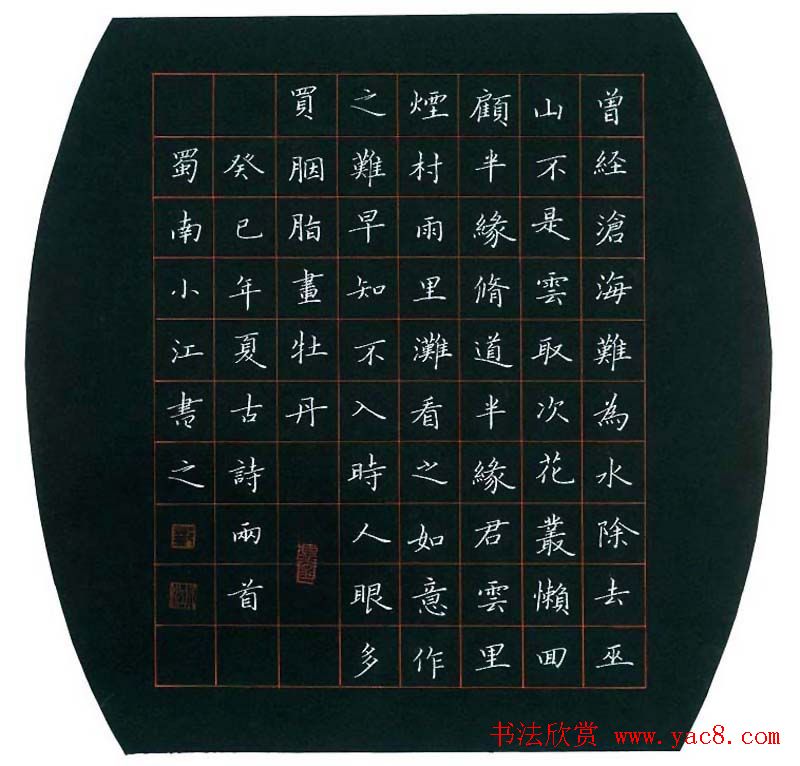 曾経滄海難為水除去巫
山不是雲取次花叢懶囬
顧半緣脩道半緣君雲里
煙村雨里灘看之如意作
之難早知不入時人眼多
買胭脂畫牡丹
癸巳年夏古詩兩首
蜀南小江書之
书法欣赏 www.yac8.com